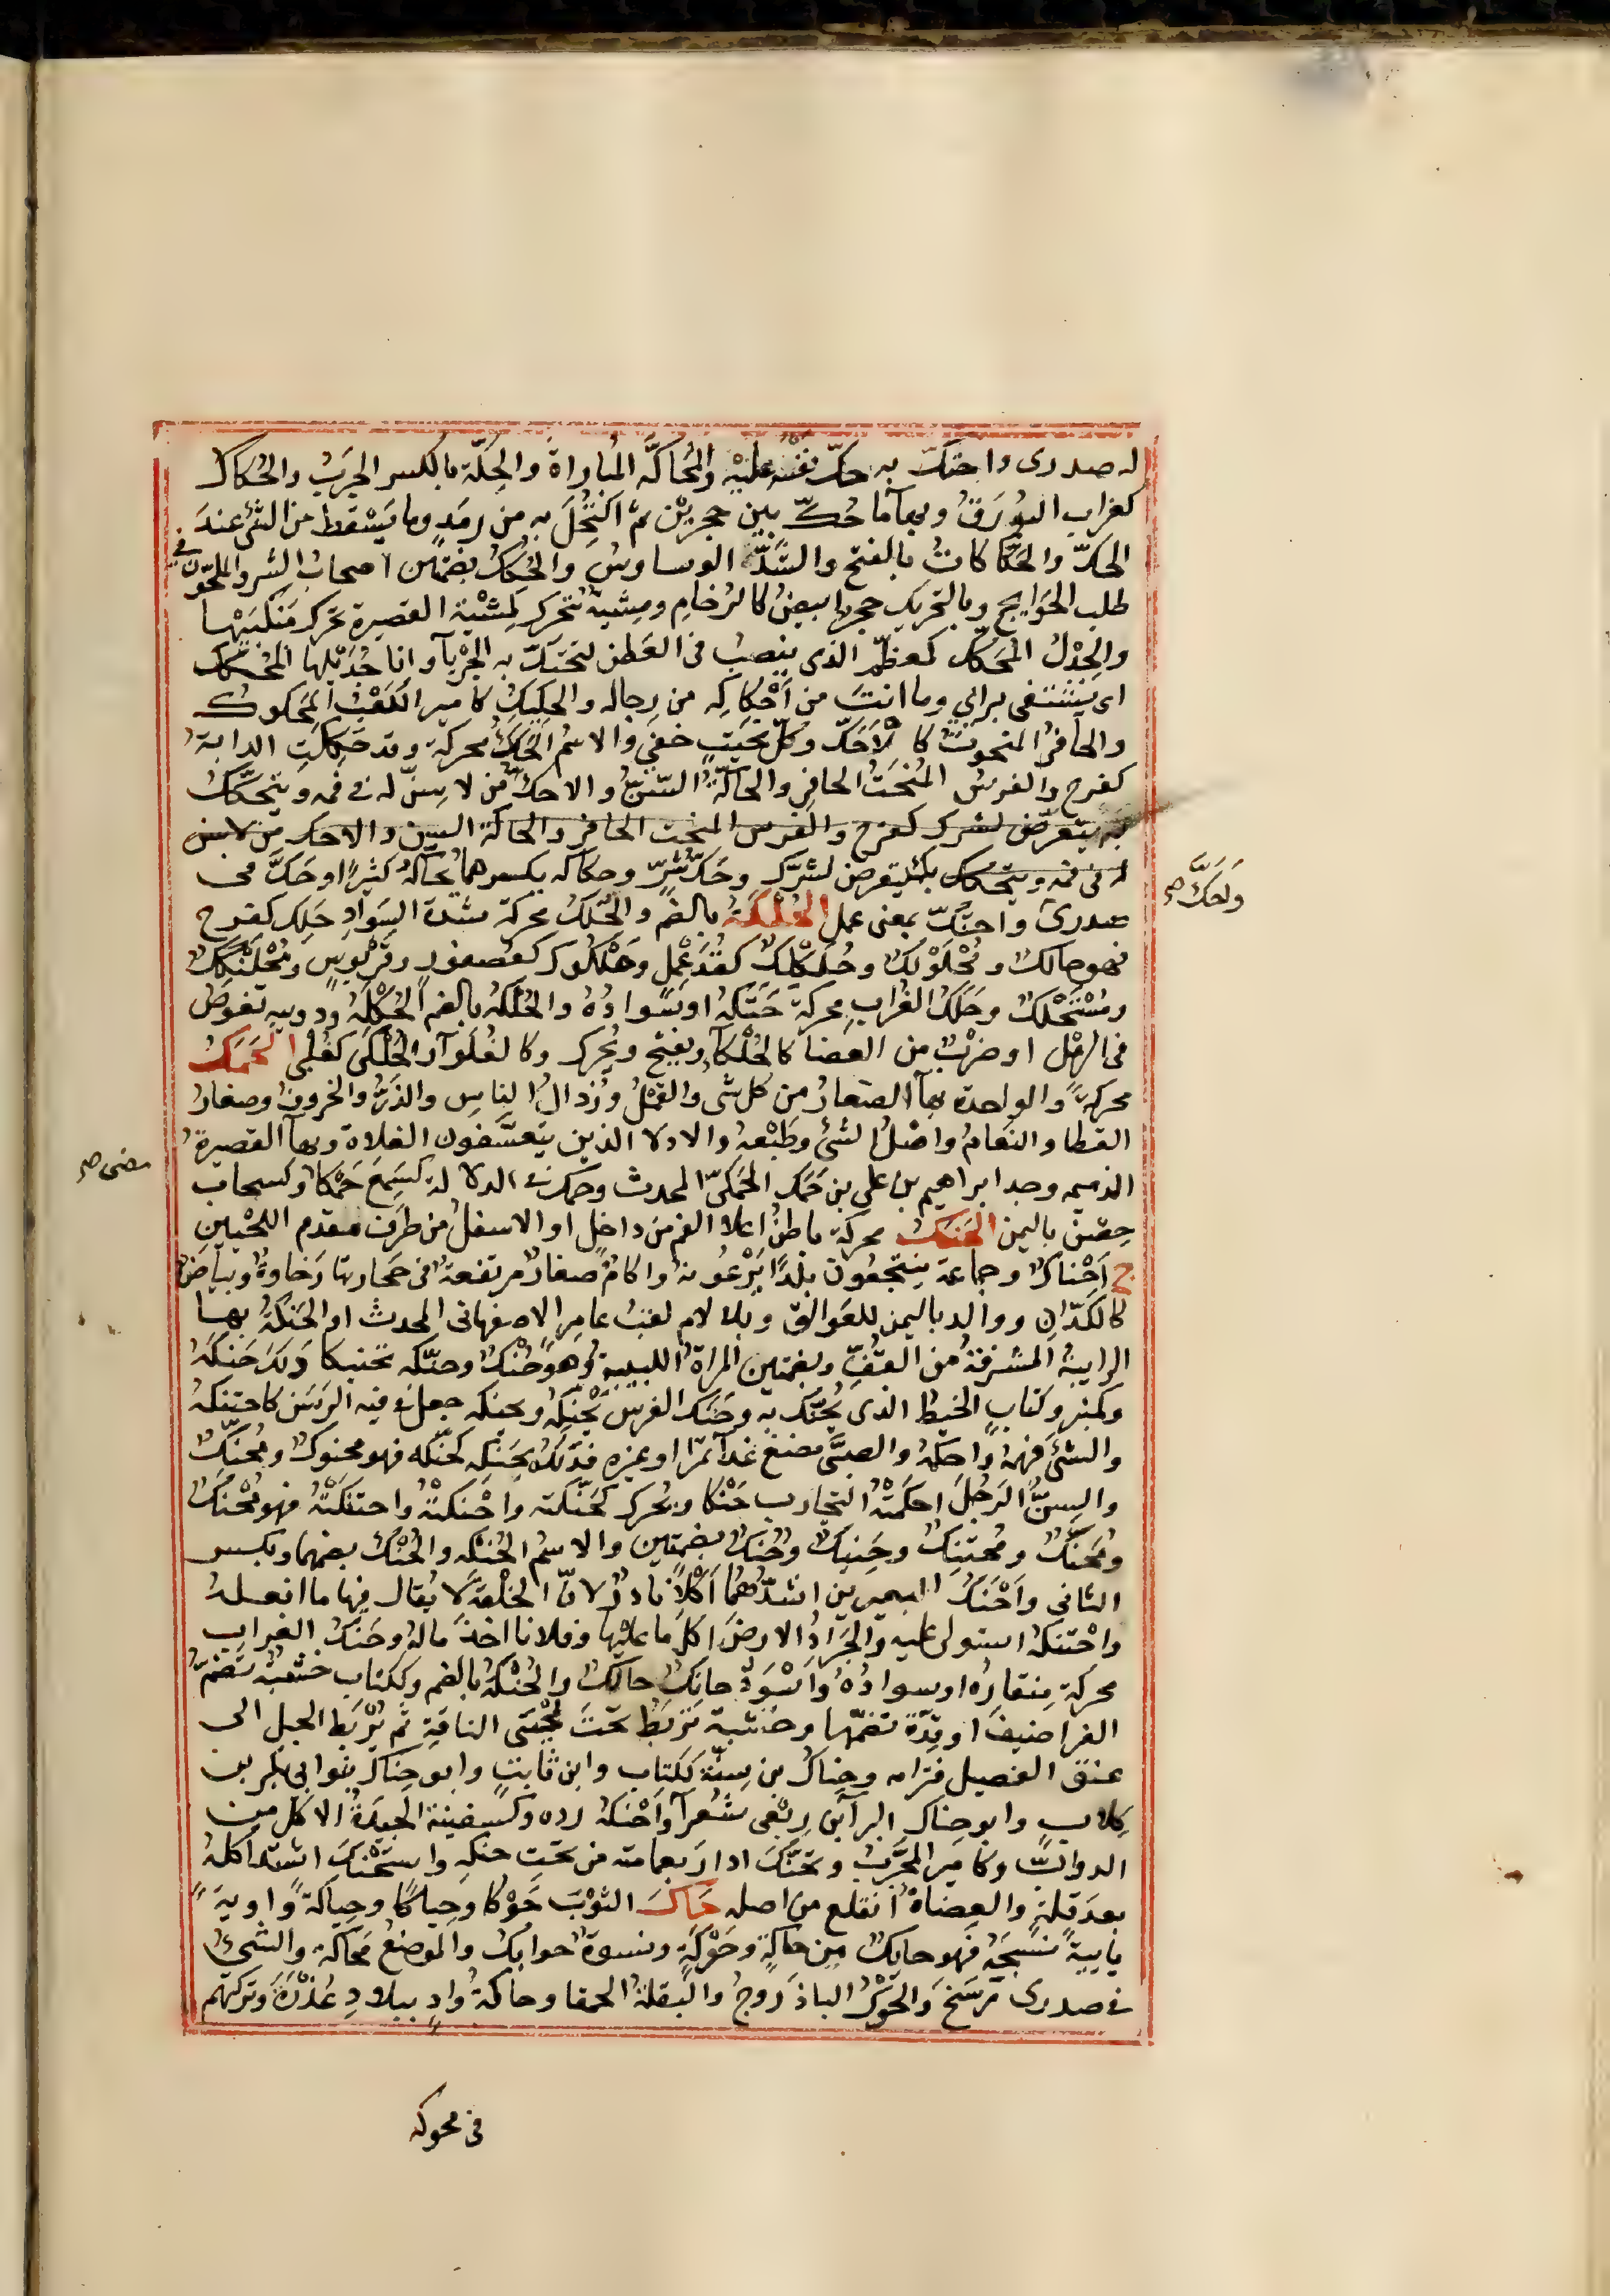 له صدرى واحتكّ به حكّ نفسه عليه والمُحاكّة المُباراةُ والحِكّة بالكسر الجرَبُ والحُكاك
كغراب البُورَقُ وبهآء ما حُكّ بين حجريْن ثم اكتُحِلَ به من رمَدٍ وما يَسْقطُ من الشئ عندَ
الحكّ والحَكّاكاتُ بالفتح والشَدّ الوساوسُ والحُكُكُ بضمّتين اصحابُ الشر والملحّون في
طلب الحَوايج وبالتحريك حجر ابيضُ كالرُخامِ ومِشيةٌ بتحرك كمِشْيَة القصيرة تحرك مَنكبَيْها
والجِذْلُ المُحَكّكُ كمعظّمٍ الذى ينصبُ فى العَطن لتحتكّ به الجَرْبآ وانا جُذَيْلها المُحَكّك
اى يُسْتشفى برائي وما انتَ من اَحْكاكِه من رجاله والحَكيكُ كامير الكَعْبُ المَحكوك
والحافرُ المنحوتُ كالاَحَكّ وكلّ نحيتٍ خفىٍّ والاسمُ الحَكَكُ محركة وقد حَكِكَتِ الدابةُ
كفرح والفرسُ المُنْحَتُّ الحافرِ والحاكّةُ السّنّ والاحكّ من لا سِنّ له فى فمه ويتحكّكُ
به يتعرّض لشرك كفرح والفرس المنحت الحافر والحاكة السن والاحك من لا سن
له فى فمه ويتحكك بك يتعرض لشرّك وحَكّ شرٍّ وحكاكه بكسرهما يُحاكّهُ كثيرًا وحَكّ فى
ولحكّ صح
صدرى واحتكّ بمعنى عمل الحُلْكَةُ بالضم والحَلَكُ محركة شدة السَوادِ حَلِك كفرح
فهو حالكٌ ومُحْلَوْلِكٌ وحُلَكْلِكٌ كقُذَعْمِلٍ وحُلْكُوك كعُصفورٍ وقَرَبُوسٍ ومُحْلَنْكِكٌ
ومُسْتَحْلِكٌ وحَلَكُ الغُرابِ محركة حَنَكُهُ او سَوادُهُ والحُلْكةُ بالضم الحُكْلَةُ ودويبةٌ تغوصُ
فى الرمْلِ او ضرْبٌ من العضا كالحُلْكآءِ ويفتح ويُحرك وكالغُلَوآء والحُلَكَى كغُلُبّى الحَمَكُ
محركةً والواحدة بهآ الصغارُ من كل شئ والقمْلُ ورُذالُ الناسِ والذَرُّ والخروف وصغارُ
القطا والنَعامُ واصْلُ الشئ وطَبْعه والادلا الذين يتعسَّفون الفلاة وبهآ القصيرةُ
الدميمه وجد ابراهيم بن على بن حَمَك الحَمَكىّ المحدث وحمك فى الدلالة كسَمِعَ حَمْكًا وكسحاب
مضى صح
حِصْنٌ باليمن الحَنَكُ محركة باطنُ اعلا الفم من داخلٍ او الاسفلُ من طرَف مقدم اللحْيَينِ
ج اَحْناكٌ وجماعة يَنتجعُون بلدًا يَرْعُونهُ واكامٌ صغارٌ مرتفعةٌ فى حجارتها رَخاوةٌ وبياضٌ
كالكدّانِ وواد باليمن للعَوالق وبلا لام لقبُ عامرٍ الاصفهانى المحدث او الحَنَكةُ بهآ
الرابيةُ المشرفةُ من القُفّ وبضمّتين المراةُ اللبيبةُ وهو حُنُكٌ وحنّكه تحنيكا دلك حَنكَهُ
وكمنبر وكتابٍ الخيطُ الذى يُحنّك به وحَنَك الفرسَ يَحْنِكُهُ ويحنُكه جعل فى فيه الرَسَنَ كاحتنكهُ
والشئَ فهمَهُ واحكمَهُ والصبىَّ مضغَ غدآ تمرًا او غيره فدَلَكهُ بحَنَكِه كحَنّكه فهو محنوكٌ ومُحنّكٌ
والسِنُّ الرَجُلَ احكمَتْهُ التجارب حَنْكا ويُحرك كَحَنّكته واَحْنكتْهُ واحتنكَتْهُ فهو مُحْنَكٌ
ومُحَنّكٌ ومُحتَنِكٌ وحَنيكٌ وحُنُكٌ بضمّتين والاسمُ الحُنكةُ والحُنْكُ بضمهما وبكسر
الثانى واَحْنَكُ البعيرين اشدّهُما اَكْلاً نادرٌ لانّ الخِلْقةَ لا يُقال فيها ما افعلهُ
واحْتنكهُ استولى عليه والجَرادُ الارضَ اكلَ ما عليها وفلانا اخذَ مالهُ وحَنَكُ الغراب
محركة مِنقارُه او سوادُهُ واَسْوَدُ حانِكٌ حالكٌ والحُنْكةُ بالضم وككتاب خشبةٌ تضمُّ
الغراضيفَ او قِدّةٌ تضمّها وخشبة تربَطُ تحتَ لَحْيَى الناقةِ ثم يُرْبَط الحبل الى
عنق الفصيل فترامه وحِناكُ بن سِنّة ككتاب وابن ثابتٍ وابو حِناكٍ بنو ابى بكر بن
كِلاب وابو حِناكٍ البرآبن ربعى شُعرآ واَحْنكهُ رده وكسفينة الجيدةُ الاكل من
الدوابّ وكامير المجَرّبُ وتحنَّكَ ادارَ بعمامته من تحتِ حنكه واستحْنكَ اشتدّ اكلهُ
بعدَ قلةٍ والعِضاهُ انقلع من اصله حاكَ الثوْبَ حَوْكا وحِياكًا وحِياكةً واويةً
يايّيةً نسَجَهُ فهو حايكٌ من حاكةٍ وحَوَكةٍ ونسوةٌ حوايكُ والموضعُ مَحاكةٌ والشئُ
فى صدرى رسَخَ والحَوْكُ الباذَروجُ والبقلةُ الحمقا وحاكةُ وادٍ ببلادِ عُذْرَةَ وتركتهم
فى محوكه